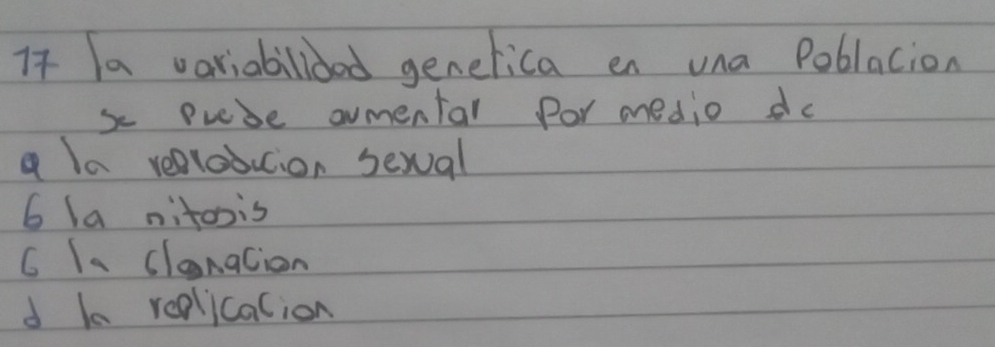 17 la variabilidad genetica en una Poblacion
se puede aumentar Por medio de
a la reproducion sexual
b la mitosis
c la clonacion
d la replicacion